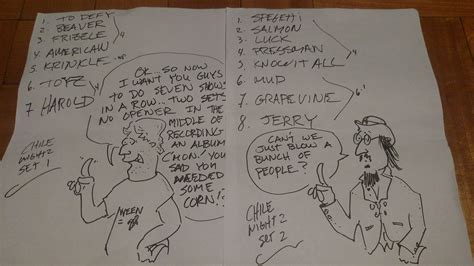 1. TO DEFY
2. BEAVER
3. FRIZZLE
4. AMERICAN
5. KRINKLE
6. TOYZ
7 HAROLD
4
4
CHILE
NIGHT 2
SET 1
OK.. SO NOW
I WANT YOU GUYS
TO DO SEVEN SHOWS
IN A ROW.. TWO SETS
NO OPENER IN THE
MIDDLE OF
RECORDING
AN ALBUM
C'MON! YOU
SAD YOU
NEEDED
SOME
CORN!?
WEEN
1. SPEGETTI
2. SALMON
3. LUCK
4. PRESSMAN
5. KNOW IT ALL
6. MUD
7. GRAPEVINE
8. JERRY
4
6'
CAN'T WE
JUST BLOW A
BUNCH OF
PEOPLE?
CHILE
NIGHT 2
SET 2